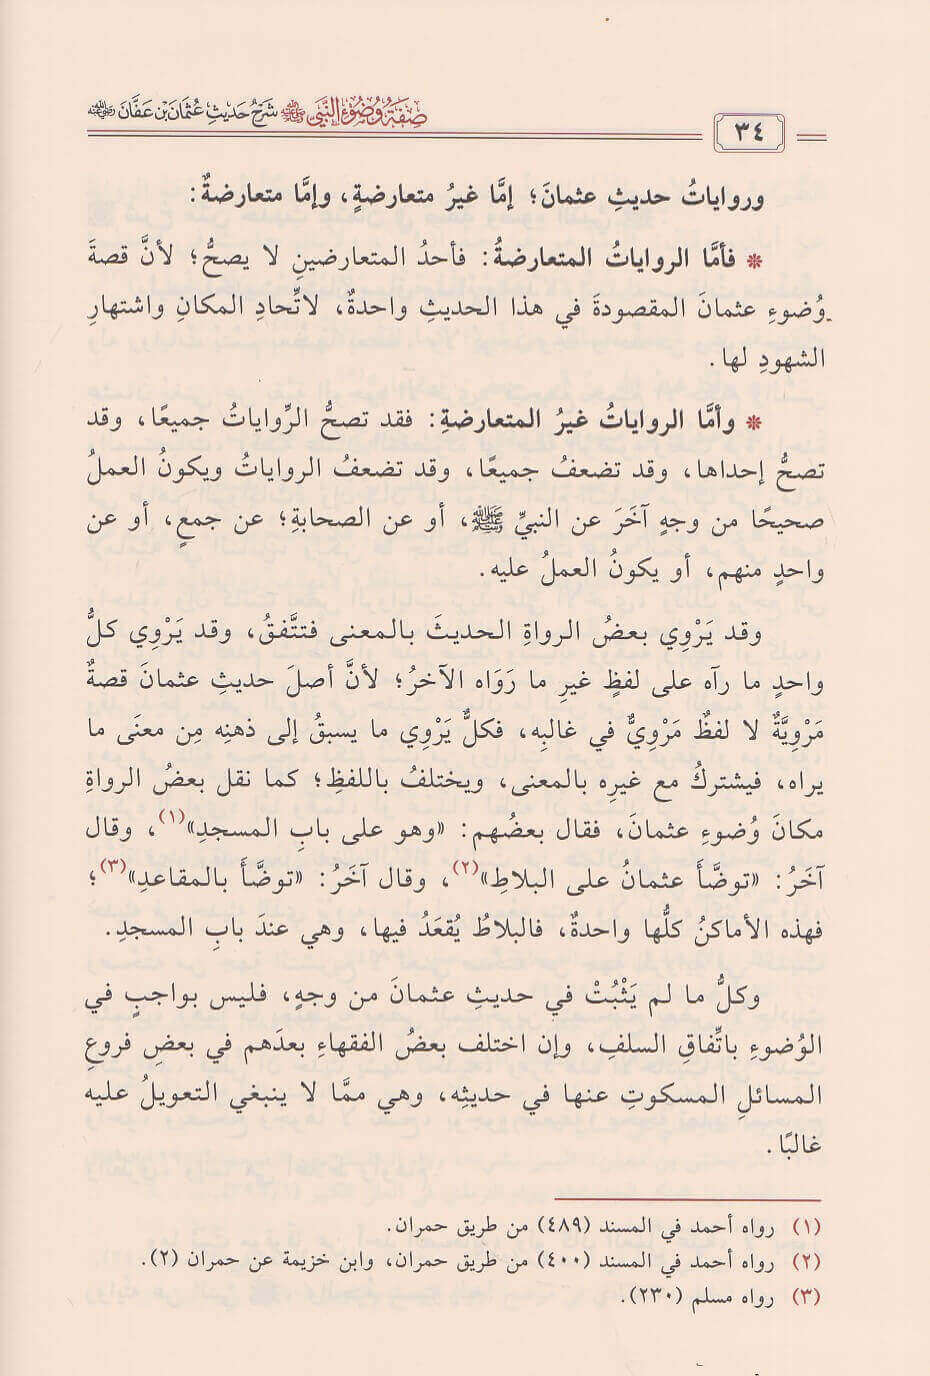 صِفَةُ وُضُوءِ النَّبِيِّ ﷺ شَرْحُ حَدِيثِ عُثْمَانَ بْنِ عَفَّانَ رضي الله عنه
٣٤
ورواياتُ حديثِ عثمانَ؛ إمَّا غيرُ متعارضةٍ، وإمَّا متعارضةٌ:
* فأمَّا الرواياتُ المتعارضةُ: فأحدُ المتعارضينِ لا يصحُّ؛ لأنَّ قصةَ
وُضوءِ عثمانَ المقصودةَ في هذا الحديثِ واحدةٌ، لاتِّحادِ المكانِ واشتهارِ
الشهودِ لها.
* وأمَّا الرواياتُ غيرُ المتعارضةِ: فقد تصحُّ الرِّواياتُ جميعًا، وقد
تصحُّ إحداها، وقد تضعفُ جميعًا، وقد تضعفُ الرواياتُ ويكونُ العملُ
صحيحًا من وجهٍ آخَرَ عن النبيِّ ﷺ، أو عن الصحابةِ؛ عن جمعٍ، أو عن
واحدٍ منهم، أو يكونُ العملُ عليه.
وقد يَرْوِي بعضُ الرواةِ الحديثَ بالمعنى فتتَّفقُ، وقد يَرْوِي كلُّ
واحدٍ ما رآه على لفظٍ غيرِ ما رَوَاه الآخرُ؛ لأنَّ أصلَ حديثِ عثمانَ قصةٌ
مَرْوِيَّةٌ لا لفظٌ مَرْوِيٌّ في غالبِه، فكلٌّ يَرْوِي ما يسبقُ إلى ذهنِه مِن معنَى ما
يراه، فيشتركُ مع غيرِه بالمعنى، ويختلفُ باللفظِ؛ كما نقل بعضُ الرواةِ
مكانَ وُضوءِ عثمانَ، فقال بعضُهم: «وهو على بابِ المسجدِ»(١)، وقال
آخَرُ: «توضَّأَ عثمانُ على البلاطِ»(٢)، وقال آخَرُ: «توضَّأَ بالمقاعدِ»(٣)؛
فهذه الأماكنُ كلُّها واحدةٌ، فالبلاطُ يُقعَدُ فيها، وهي عندَ بابِ المسجدِ.
وكلُّ ما لم يَثْبُتْ في حديثِ عثمانَ من وجهٍ، فليس بواجبٍ في
الوُضوءِ باتِّفاقِ السلفِ، وإن اختلف بعضُ الفقهاءِ بعدَهم في بعضِ فروعِ
المسائلِ المسكوتِ عنها في حديثِه، وهي ممَّا لا ينبغي التعويلُ عليه
غالبًا.
(١) رواه أحمد في المسند (٤٨٩) من طريق حمران.
(٢) رواه أحمد في المسند (٤٠٠) من طريق حمران، وابن خزيمة عن حمران (٢).
(٣) رواه مسلم (٢٣٠).